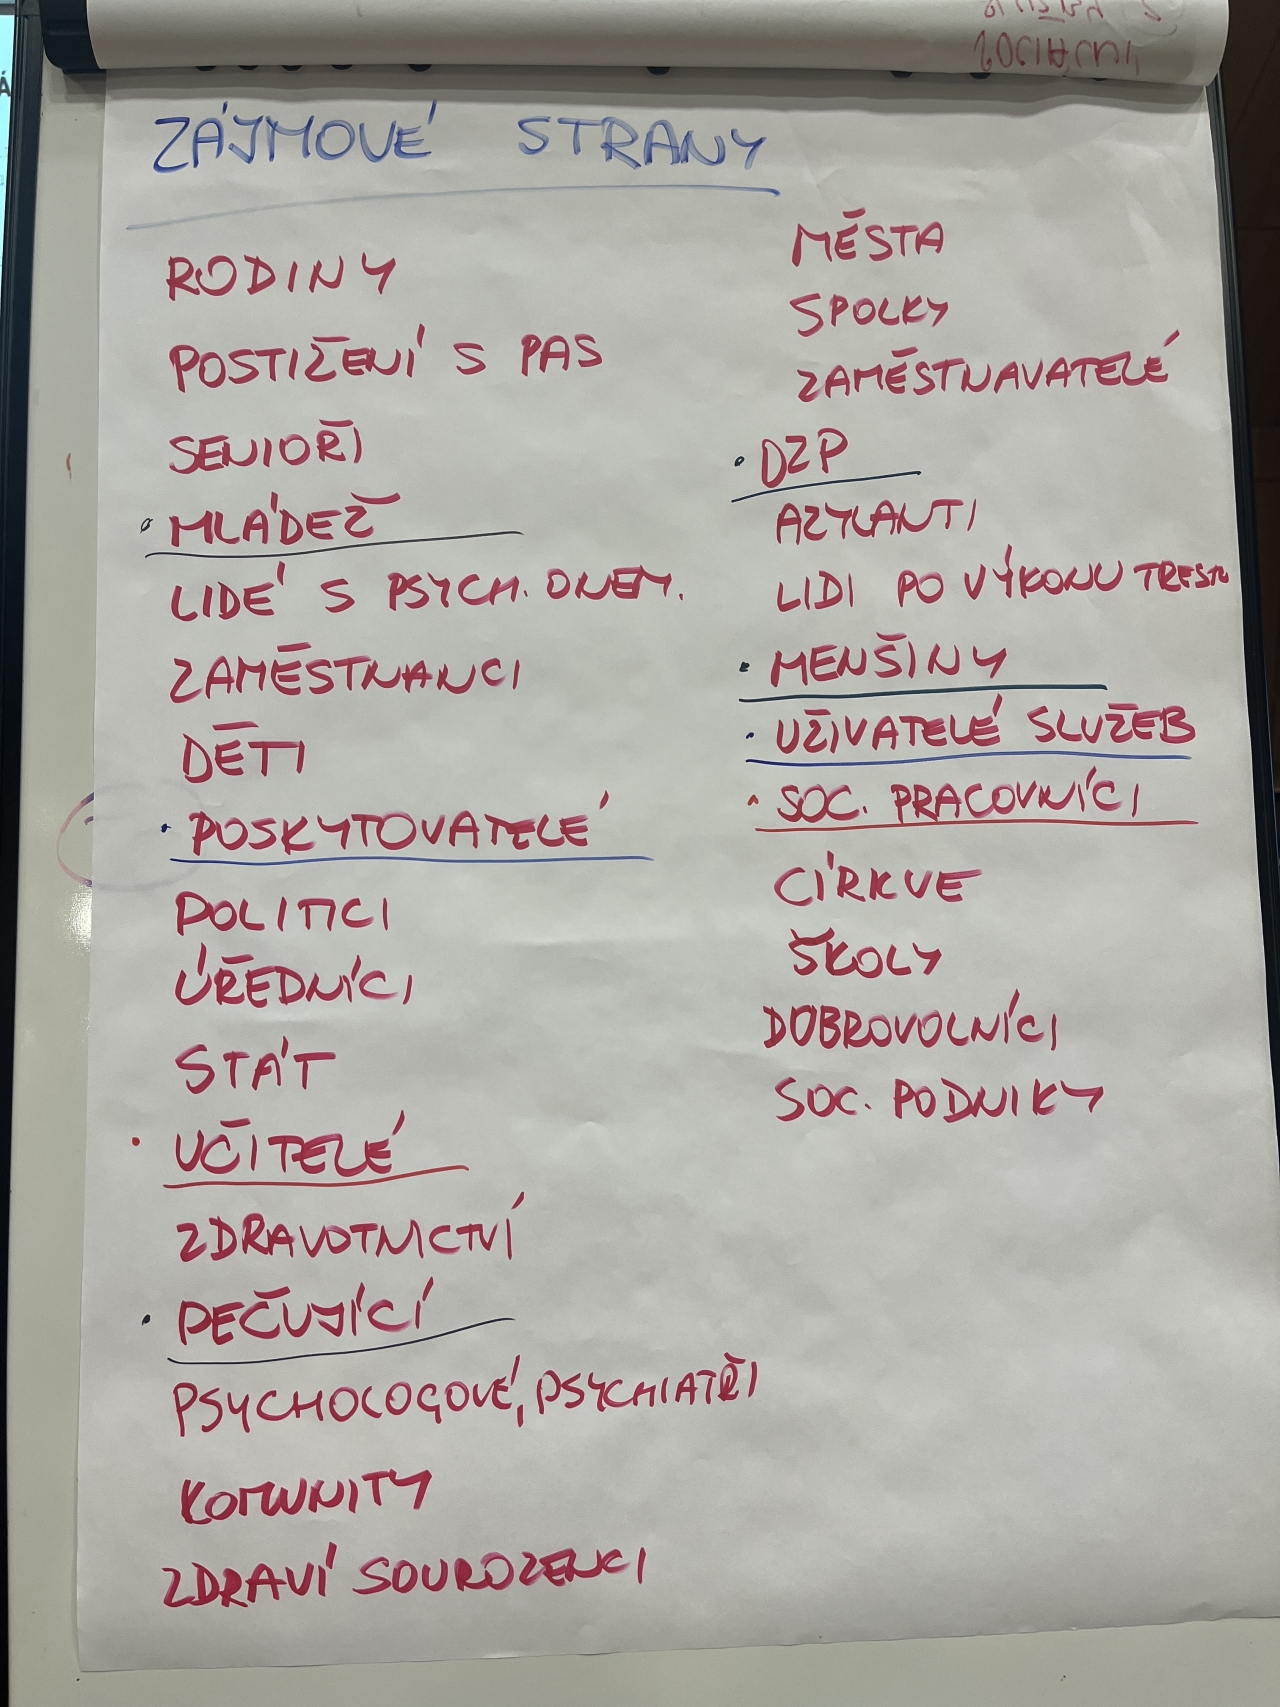 ZÁJMOVÉ STRANY
RODINY
POSTIŽENÍ S PAS
SENIOŘI
• MLÁDEŽ
LIDÉ S PSYCH. ONEM.
ZAMĚSTNANCI
DĚTI
• POSKYTOVATELÉ
POLITICI
ÚŘEDNÍCI
STÁT
• UČITELÉ
ZDRAVOTNICTVÍ
• PEČUJÍCÍ
PSYCHOLOGOVÉ, PSYCHIATŘI
KOMUNITY
ZDRAVÍ SOUROZENCI
MĚSTA
SPOLKY
ZAMĚSTNAVATELÉ
• OZP
AZYLANTI
LIDI PO VÝKONU TRESTU
• MENŠINY
• UŽIVATELÉ SLUŽEB
• SOC. PRACOVNÍCI
CÍRKVE
ŠKOLY
DOBROVOLNÍCI
SOC. PODNIKY